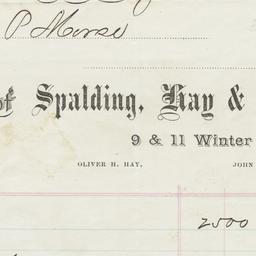 P Morse
of Spalding, Hay &
9 & 11 Winter
OLIVER H. HAY, JOHN
2500